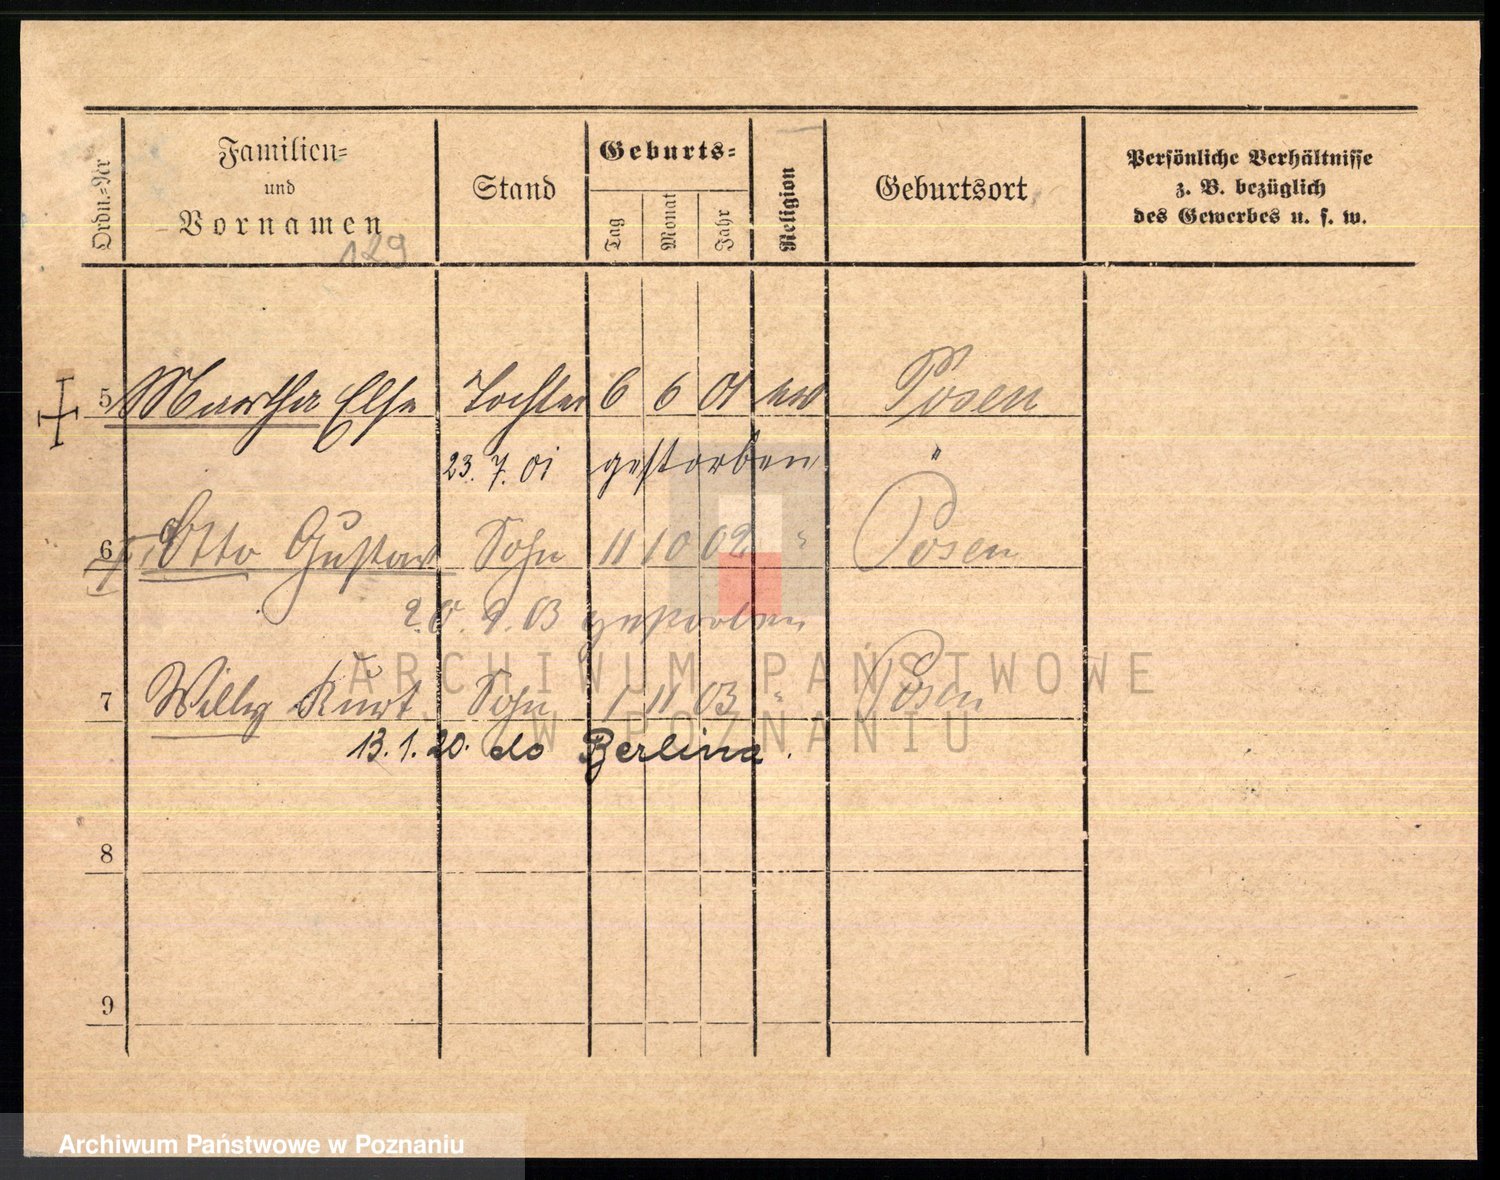 Ordn.=Nr
Familien=
und
Vornamen
129
Stand
Geburts=
Tag
Monat
Jahr
Religion
Geburtsort
Persönliche Verhältnisse
z. B. bezüglich
des Gewerbes u. s. w.
5 Martha Else Tochter 6 6 01 ev Posen
23. 7. 01 gestorben "
6 Otto Gustav Sohn 11 10 02 " Posen
9. 03 gestorben
ARCHIWUM PAŃSTWOWE
7 Willy Kurt Sohn 1 11 03 " Posen
W POZNANIU
13. 1. 20. do Berlina.
8
9
Archiwum Państwowe w Poznaniu